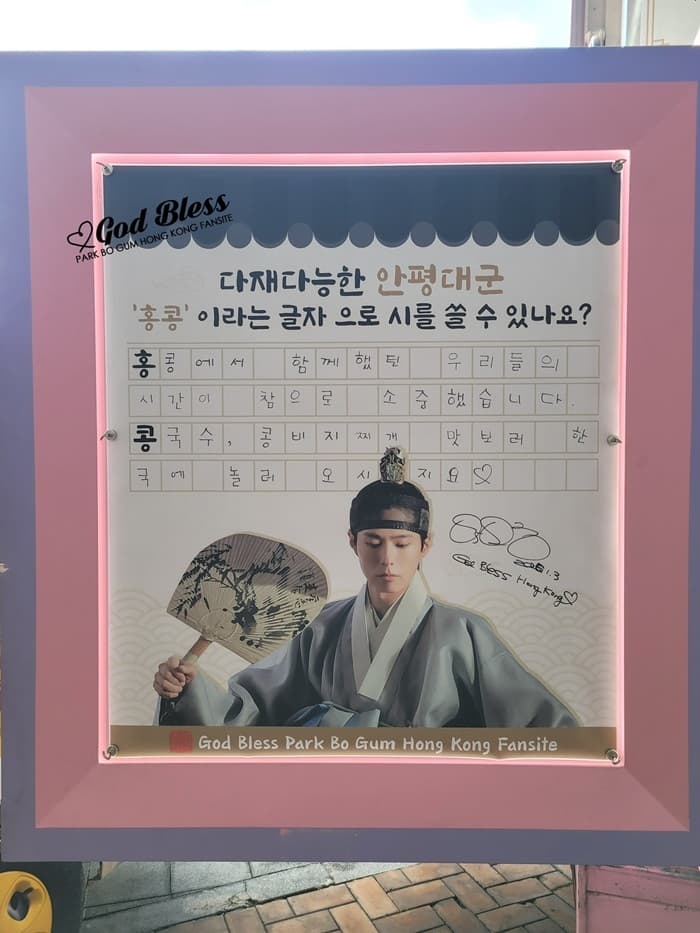 God Bless
PARK BO GUM HONG KONG FANSITE
다재다능한 안평대군
'홍콩' 이라는 글자 으로 시를 쓸 수 있나요?
홍콩에서 함께했던 우리들의
시간이 참으로 소중했습니다.
콩국수, 콩비지찌개 맛보러 한
국에 놀러 오시지요♡
God Bless Hong Kong♡
God Bless Park Bo Gum Hong Kong Fansite